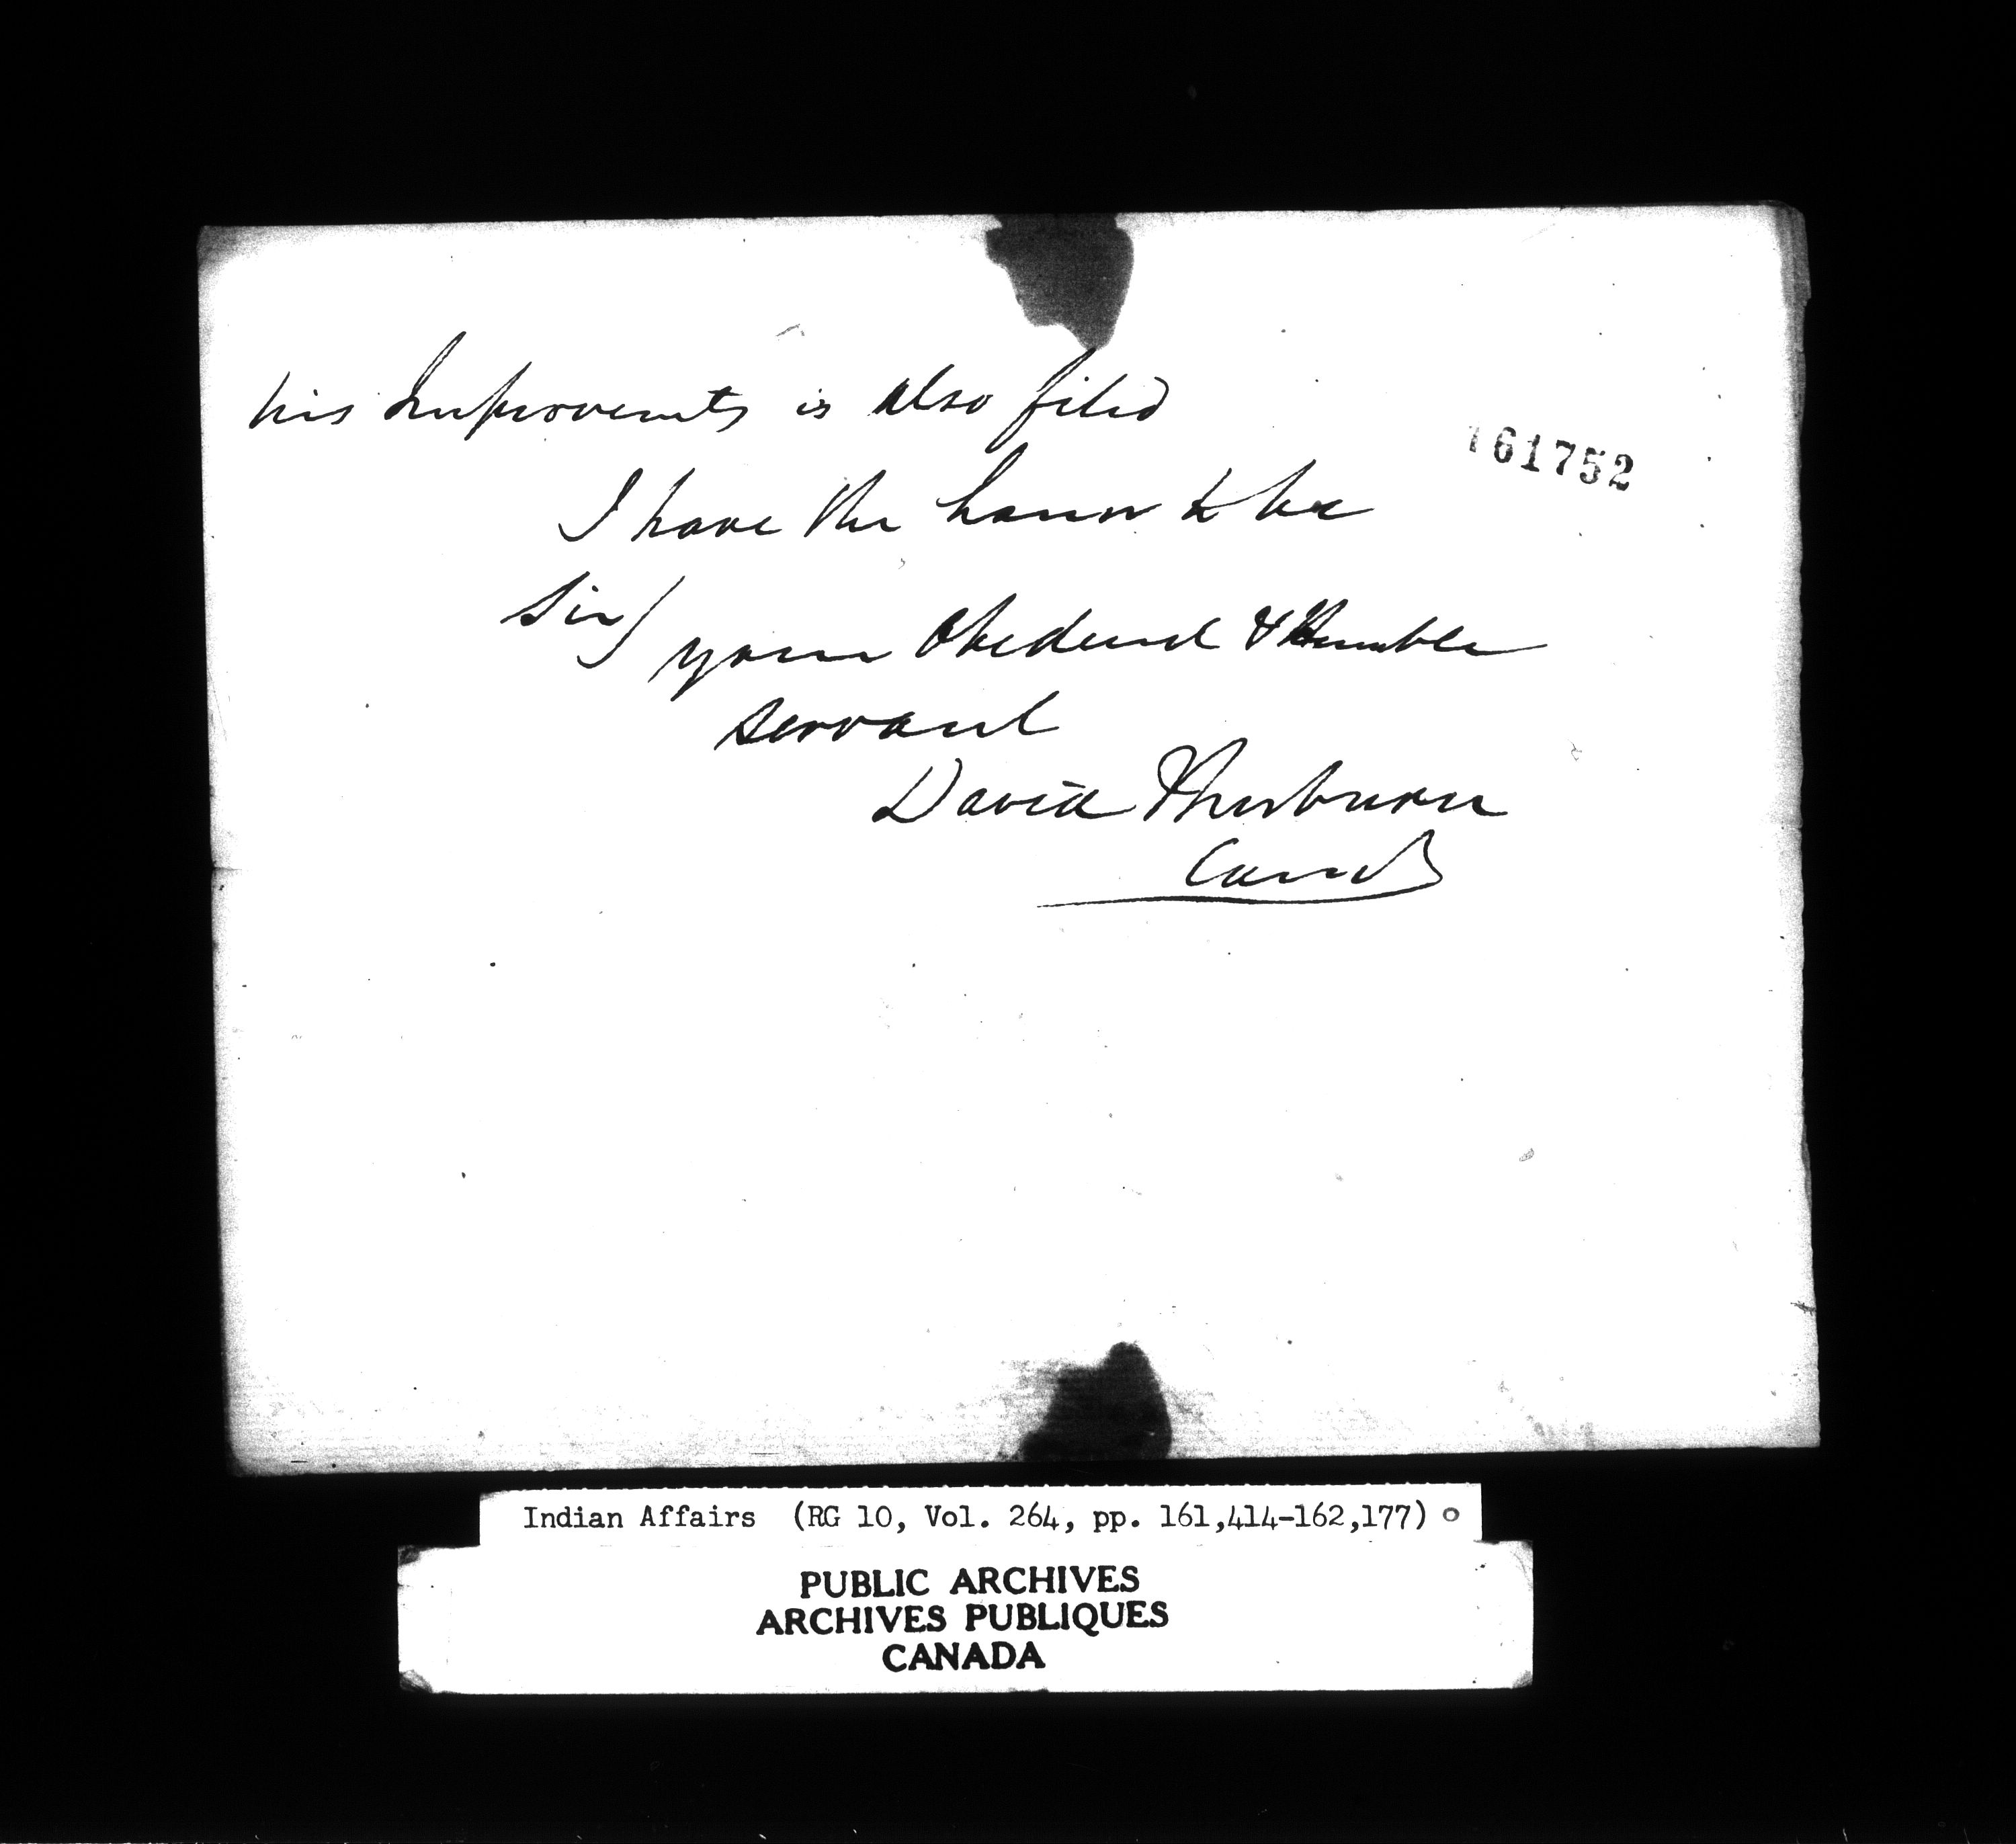 his Improvements is also filed
161752
I have the honor to be
Sir/
your Obedient & Humble
Servant
David Thorburn
Comr
Indian Affairs (RG 10, Vol. 264, pp. 161,414-162,177)
PUBLIC ARCHIVES
ARCHIVES PUBLIQUES
CANADA